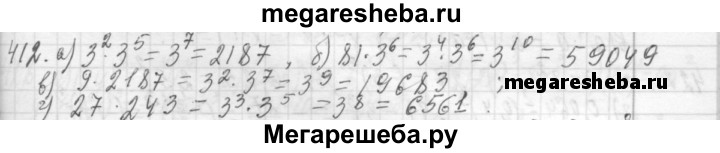 megaresheba.ru
412. а) 3²·3⁵=3⁷=2187, б) 81·3⁶=3⁴·3⁶=3¹⁰=59049
в) 9·2187=3²·3⁷=3⁹=19683;
г) 27·243=3³·3⁵=3⁸=6561.
megaresheba.ru
Мегарешеба.ру